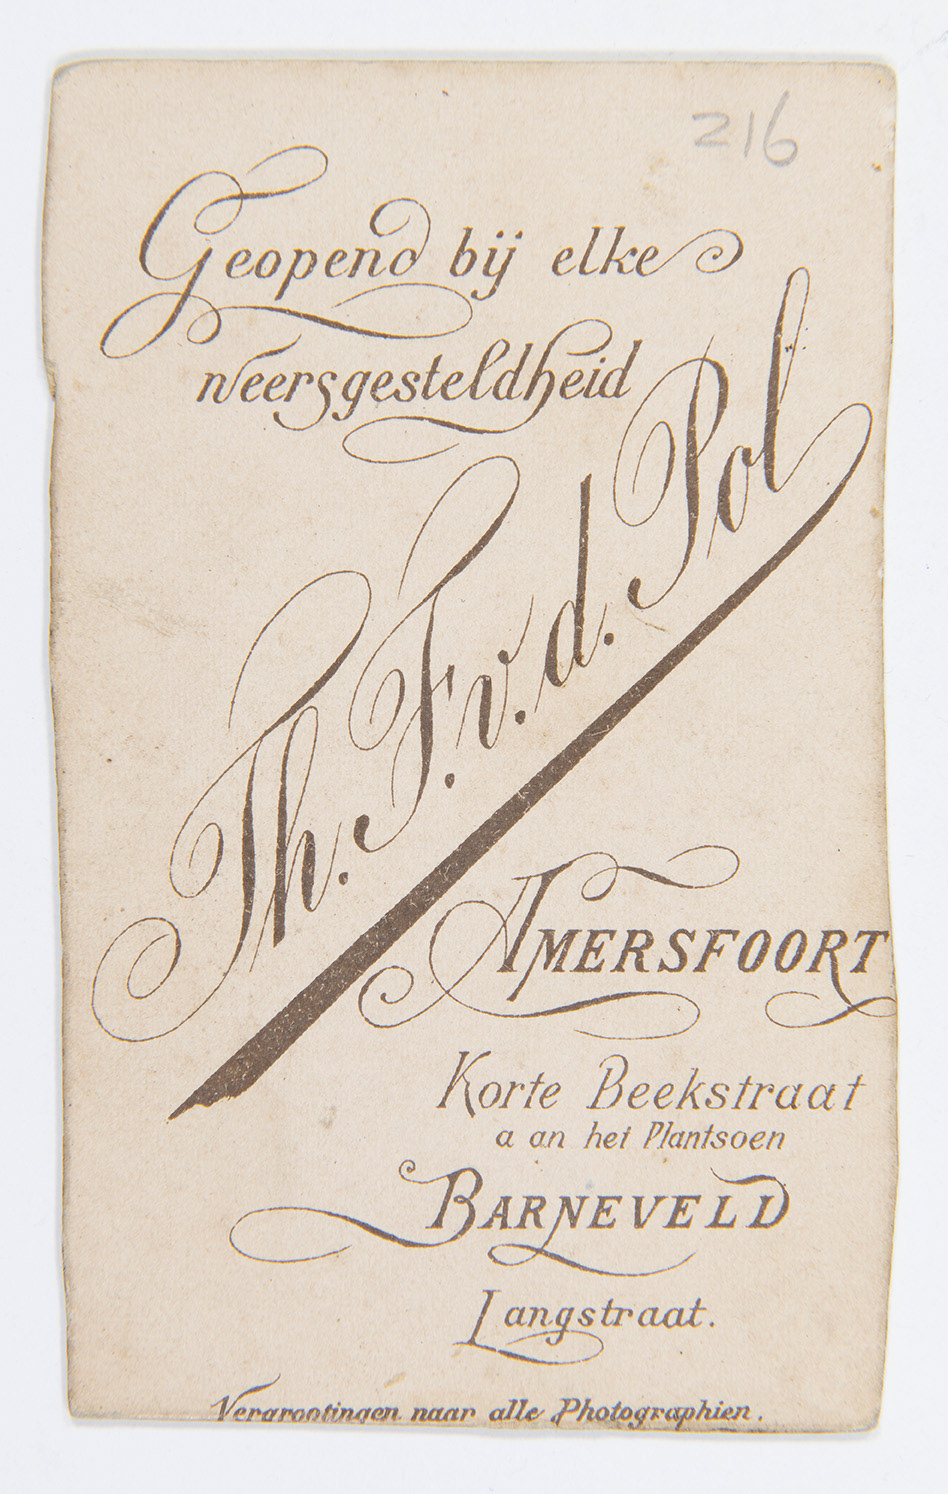 216
Geopend bij elke
weersgesteldheid
Th. F. v. d. Pol
AMERSFOORT
Korte Beekstraat
a an het Plantsoen
BARNEVELD
Langstraat.
Vergrootingen naar alle Photographien.